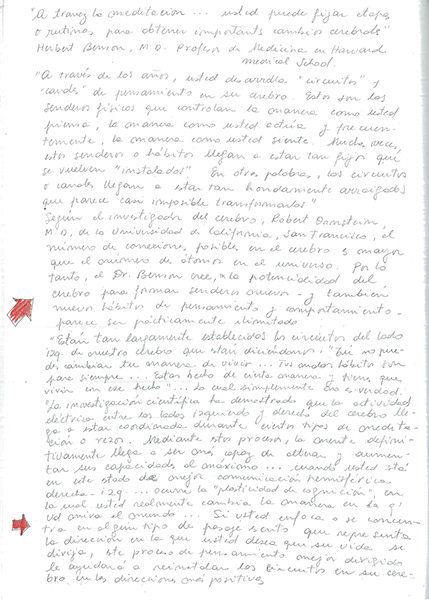 "A travez la meditación ... usted puede fijar etapas
o rutinas, para obtener importants cambios cerebrales"
Herbert Benson, M.D. Profesor de Medicina en Harvard
medical School.
"A través de los años, usted desarrolla "circuitos" y
"canales" de pensamiento en su cerebro. Estos son los
senderos físicos que controlan la manera como usted
piensa, la manera como usted actúa y frecuen-
temente, la manera como usted siente. Muchas veces,
estos senderos o hábitos llegan a estar tan fijos que
se vuelven "instalados". En otras palabras, los circuitos
o canales llegan a estar tan hondamente arraigados
que parece casi imposible transformarlos"
Según el investigador del cerebro, Robert Ornstein,
M.D, de la Universidad de California, San Francisco, el
número de conexiones, posibles en el cerebro es mayor
que el número de átomos en el universo. Por lo
tanto, el Dr. Benson cree, la potencialidad del
cerebro para formar senderos nuevos - y también
nuevos hábitos de pensamiento y comportamiento -
parece ser prácticamente ilimitado
"Están tan largamente establecidos los circuitos del lado
izq. de nuestro cerebro que están diciéndonos: "tú no pue-
des cambiar tu manera de vivir ... Tus malos hábitos son
para siempre... Estas hecho de cierta manera y tienes que
vivir en ese hecho"... Lo cual simplemente no es verdad.
"La investigación científica ha demostrado que la actividad
eléctrica entre los lados izquierdo y derecho del cerebro lle-
ga a estar coordinada durante ciertos tipos de medita-
ción o rezos. Mediante estos procesos, la mente defini-
tivamente llega a ser más capaz de alterar y aumen-
tar sus capacidades al máximo... cuando usted está
en este estado de mejor comunicación hemisférica
derecha - izq... ocurre la "plasticidad de cognición", en
la cual usted realmente cambia la manera en la q'
Ud mira el mundo... Si usted enfoca o se concen-
tra en algún tipo de pasaje escrito que representa
la dirección en la que usted desea que su vida se
dirija, este proceso de pensamiento mejor dirigido
le ayudará a reinstalar los circuitos en su cere-
bro, en las direcciones más positivas